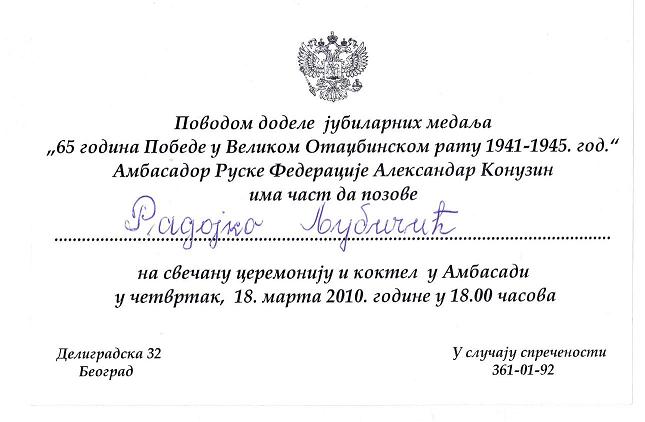 Поводом доделе јубиларних медаља
„65 година Победе у Великом Отаџбинском рату 1941-1945. год.“
Амбасадор Руске Федерације Александар Конузин
има част да позове
Радојко Љубичић
на свечану церемонију и коктел у Амбасади
у четвртак, 18. марта 2010. године у 18.00 часова
Делиградска 32
Београд
У случају спречености
361-01-92